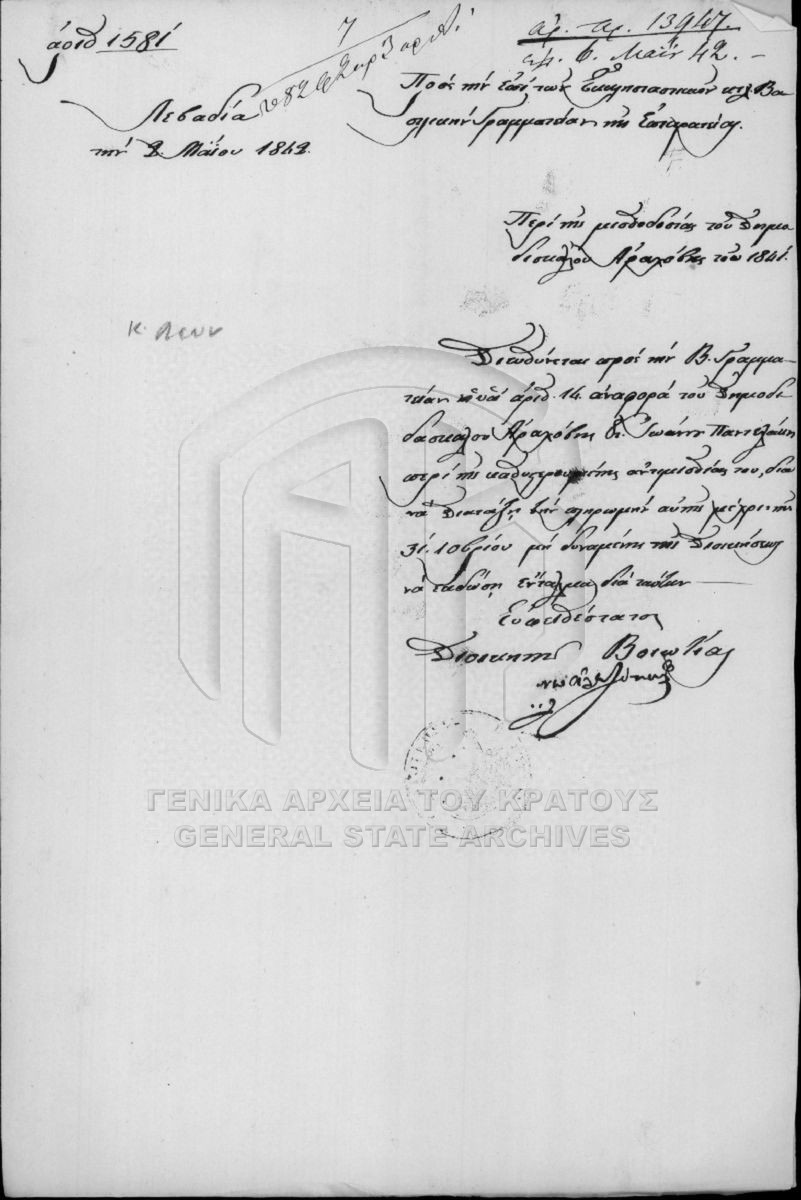 ἀριθ 1581
7
ἀρ. πρ. 13947.
ἐλ. 6. Μαΐου 42.
Λεβαδία
τὴν 2. Μαΐου 1842.
Πρὸς τὴν ἐπὶ τῶν Ἐκκλησιαστικῶν κτλ. Βα-
σιλικὴν Γραμματείαν τῆς Ἐπικρατείας.
Περὶ τῆς μισθοδοσίας τοῦ Δημο-
διδασκάλου Ἀραχόβης τοῦ 1841.
Διευθύνεται πρὸς τὴν Β. Γραμμα-
τείαν ἡ ὑπ' ἀριθ. 14 ἀναφορὰ τοῦ Δημοδι-
δασκάλου Ἀραχόβης Κ. Ἰωάννου Παντελάκη
περὶ τῆς καθυστερουμένης ἀντιμισθίας του, διὰ
νὰ διατάξῃ τὴν πληρωμὴν αὐτῆς μέχρι τῆς
31. 10βρίου μὴ δυναμένης τῆς Διοικήσεως
νὰ ἐκδώσῃ ἔνταλμα διὰ ταύτην
Εὐπειθέστατος
Διοικητὴς Βοιωτίας
ΓΕΝΙΚΑ ΑΡΧΕΙΑ ΤΟΥ ΚΡΑΤΟΥΣ
GENERAL STATE ARCHIVES